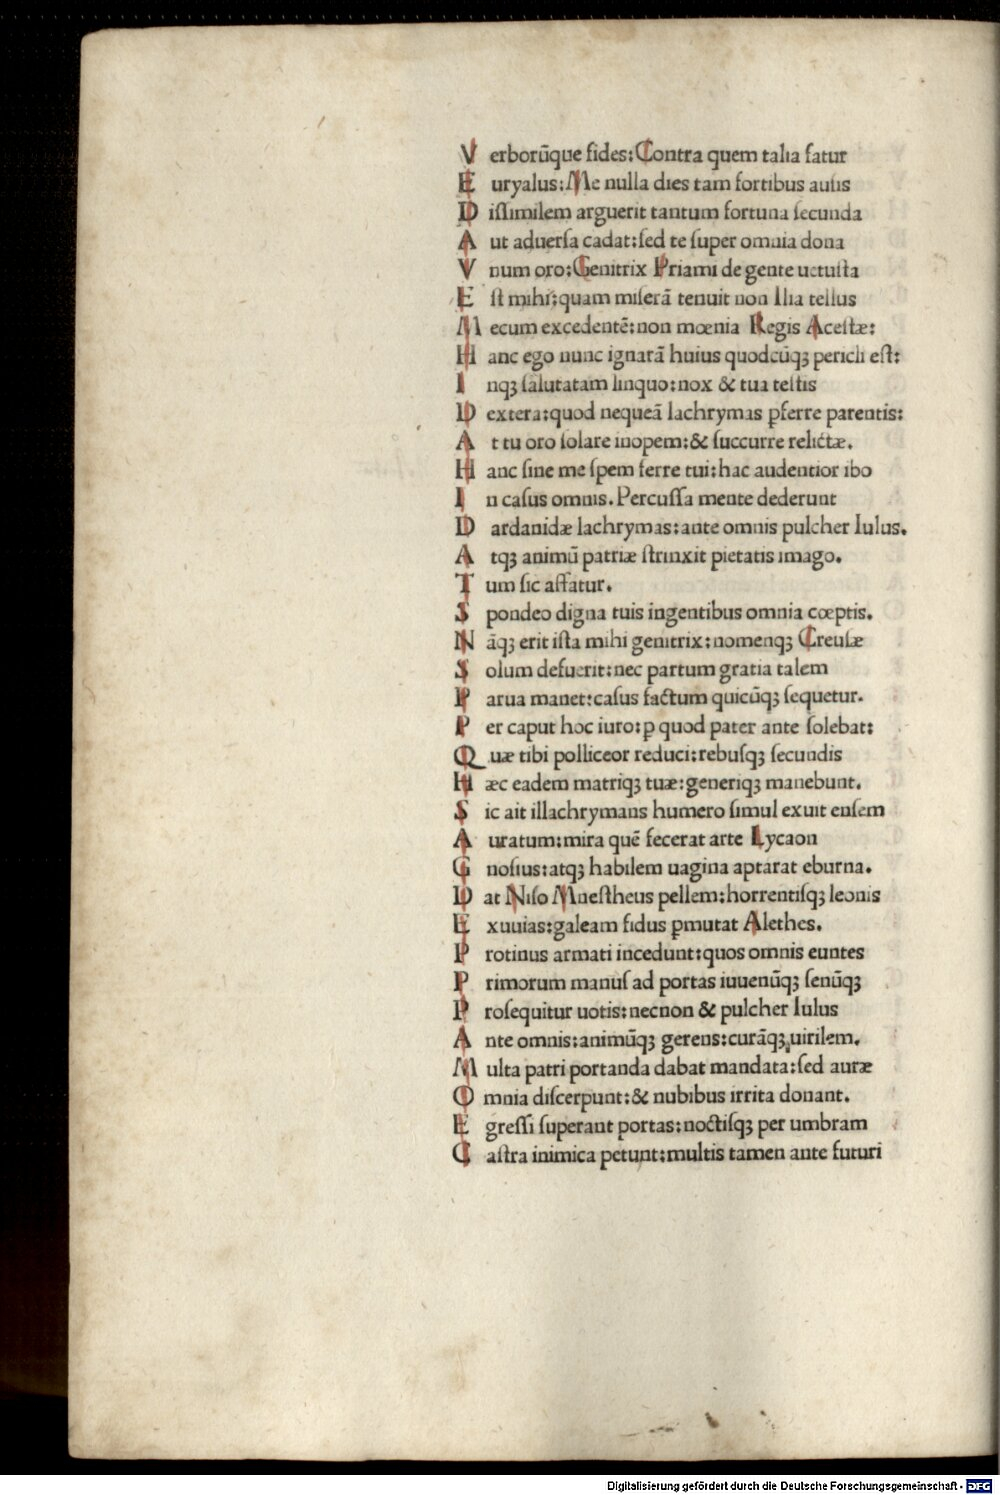 V erborūque fides: Contra quem talia fatur
E uryalus: Me nulla dies tam fortibus ausis
D issimilem arguerit tantum fortuna secunda
A ut aduersa cadat: sed te super omnia dona
V num oro: Genitrix Priami de gente uetusta
E st mihi: quam miserā tenuit non Ilia tellus
M ecum excedentē: non mœnia Regis Acestæ:
H anc ego nunc ignarā huius quodcūqꝫ pericli est:
I nqꝫ salutatam linquo: nox & tua testis
D extera: quod nequeā lachrymas ꝑferre parentis:
A t tu oro solare inopem: & succurre relictæ.
H anc sine me spem ferre tui: hac audentior ibo
I n casus omnis. Percussa mente dederunt
D ardanidæ lachrymas: ante omnis pulcher Iulus.
A tqꝫ animū patriæ strinxit pietatis imago.
T um sic affatur.
S pondeo digna tuis ingentibus omnia cœptis.
N āqꝫ erit ista mihi genitrix: nomenqꝫ Creusæ
S olum defuerit: nec partum gratia talem
P arua manet: casus factum quicūqꝫ sequetur.
P er caput hoc iuro: ꝑ quod pater ante solebat:
Q uæ tibi polliceor reduci: rebusqꝫ secundis
H æc eadem matriqꝫ tuæ: generiqꝫ manebunt.
S ic ait illachrymans humero simul exuit ensem
A uratum: mira quē fecerat arte Lycaon
G nosius: atqꝫ habilem uagina aptarat eburna.
D at Niso Mnestheus pellem: horrentisqꝫ leonis
E xuuias: galeam fidus ꝑmutat Alethes.
P rotinus armati incedunt: quos omnis euntes
P rimorum manus ad portas iuuenūqꝫ senūqꝫ
P rosequitur uotis: necnon & pulcher Iulus
A nte omnis: animūqꝫ gerens: curāqꝫ uirilem.
M ulta patri portanda dabat mandata: sed auræ
O mnia discerpunt: & nubibus irrita donant.
E gressi superant portas: noctisqꝫ per umbram
C astra inimica petunt: multis tamen ante futuri
Digitalisierung gefördert durch die Deutsche Forschungsgemeinschaft - DFG